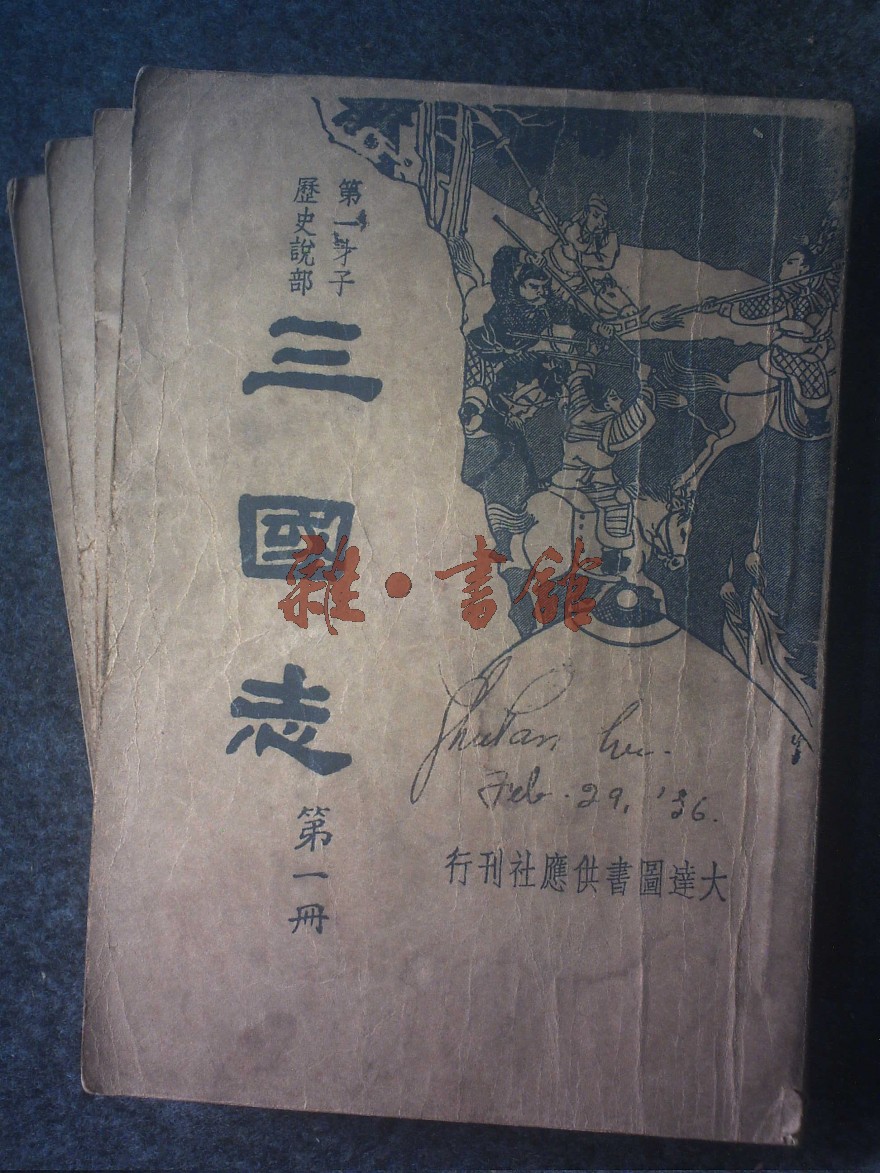 第一才子
歷史說部
三國志
第一冊
雜·書館
Feb. 29, '36.
大達圖書供應社刊行